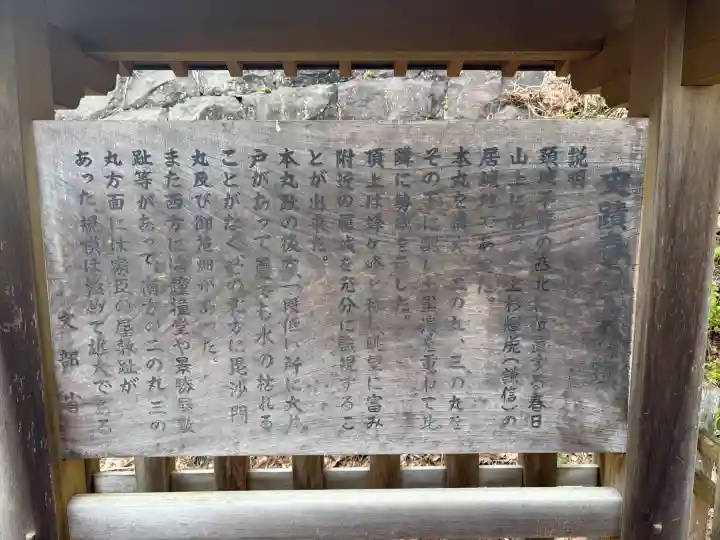 史蹟春日山城跡
説明
頸城平野の西北に位置する春日
山上に在り 上杉輝虎（謙信）の
居城地であった。
本丸を構え 二の丸、三の丸を
その下に設け土塁濠を重ねて北
陲に勢威を示した。
頂上は蜂ヶ峰と称し眺望に富み
附近の属城を充分に監視するこ
とが出来た。
本丸趾の後方、一段低い所に大井
戸があって夏でも水の枯れる
ことがなくその北方に毘沙門
丸及び御花畑があった
また西方には護摩堂や景勝屋敷
趾等があって、南方の二の丸三の
丸方面には家臣の屋敷趾が
あった規模は極めて雄大である
文部省